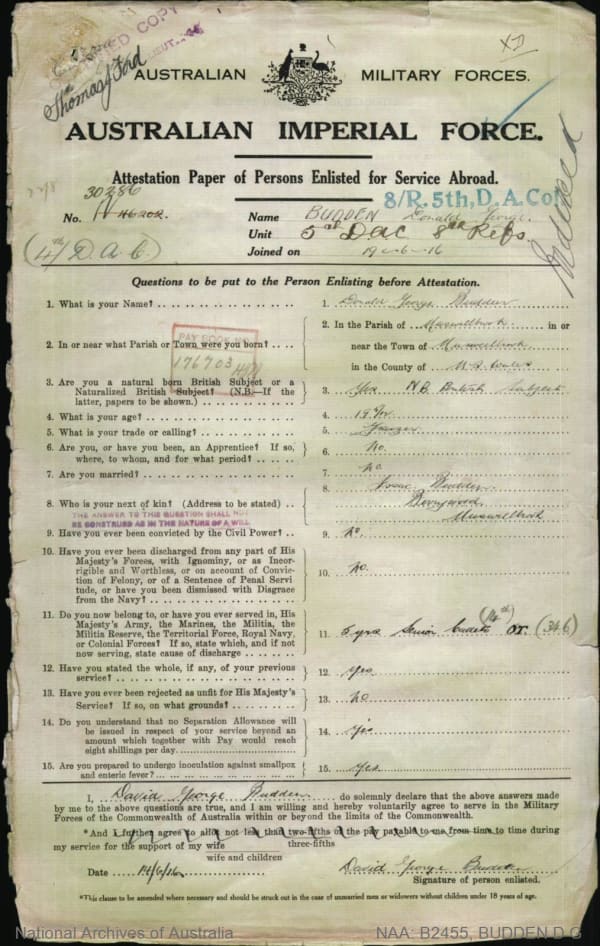 CERTIFIED COPY
Thomas Ford
AUSTRALIAN MILITARY FORCES.
AUSTRALIAN IMPERIAL FORCE.
Attestation Paper of Persons Enlisted for Service Abroad.
8/R. 5th, D.A. Col
30286
No. Name BUDDEN Donald George.
(4th D.A.C.) Unit 5th DAC 8th Refs
Joined on 19-6-16
Indexed
Questions to be put to the Person Enlisting before Attestation.
1. What is your Name? 1. Donald George Budden
2. In or near what Parish or Town were you born? 2. In the Parish of Muswellbrook in or
near the Town of Muswellbrook
in the County of N.S. Wales
PAY BOOK No.
176703
3. Are you a natural born British Subject or a
Naturalized British Subject? (N.B.—If the
latter, papers to be shown.) 3. Yes N.B. British Subject
4. What is your age? 4. 19 Yrs
5. What is your trade or calling? 5.
6. Are you, or have you been, an Apprentice? If so,
where, to whom, and for what period? 6. No.
7. Are you married? 7. No
8. Who is your next of kin? (Address to be stated) 8. Budden
Muswellbrook
THE ANSWER TO THIS QUESTION SHALL NOT
BE CONSTRUED AS IN THE NATURE OF A WILL
9. Have you ever been convicted by the Civil Power? 9. No
10. Have you ever been discharged from any part of His
Majesty's Forces, with Ignominy, or as Incor-
rigible and Worthless, or on account of Convic-
tion of Felony, or of a Sentence of Penal Servi
tude, or have you been dismissed with Disgrace
from the Navy? 10. No.
11. Do you now belong to, or have you ever served in, His
Majesty's Army, the Marines, the Militia, the
Militia Reserve, the Territorial Force, Royal Navy,
or Colonial Forces? If so, state which, and if not
now serving, state cause of discharge 11. 5 yrs Senior Cadets (14th) or (34 b)
12. Have you stated the whole, if any, of your previous
service? 12. Yes
13. Have you ever been rejected as unfit for His Majesty's
Service? If so, on what grounds? 13. No
14. Do you understand that no Separation Allowance will
be issued in respect of your service beyond an
amount which together with Pay would reach
eight shillings per day. 14. Yes
15. Are you prepared to undergo inoculation against smallpox
and enteric fever? 15. Yes
I, David George Budden do solemnly declare that the above answers made
by me to the above questions are true, and I am willing and hereby voluntarily agree to serve in the Military
Forces of the Commonwealth of Australia within or beyond the limits of the Commonwealth.
*And I further agree to allot not less than two-fifths of the pay payable to me from time to time during
three-fifths
my service for the support of my wife
wife and children
Date 14/6/16 David George Budden
Signature of person enlisted.
*This clause to be amended where necessary and should be struck out in the case of unmarried men or widowers without children under 18 years of age.
National Archives of Australia NAA: B2455, BUDDEN D G